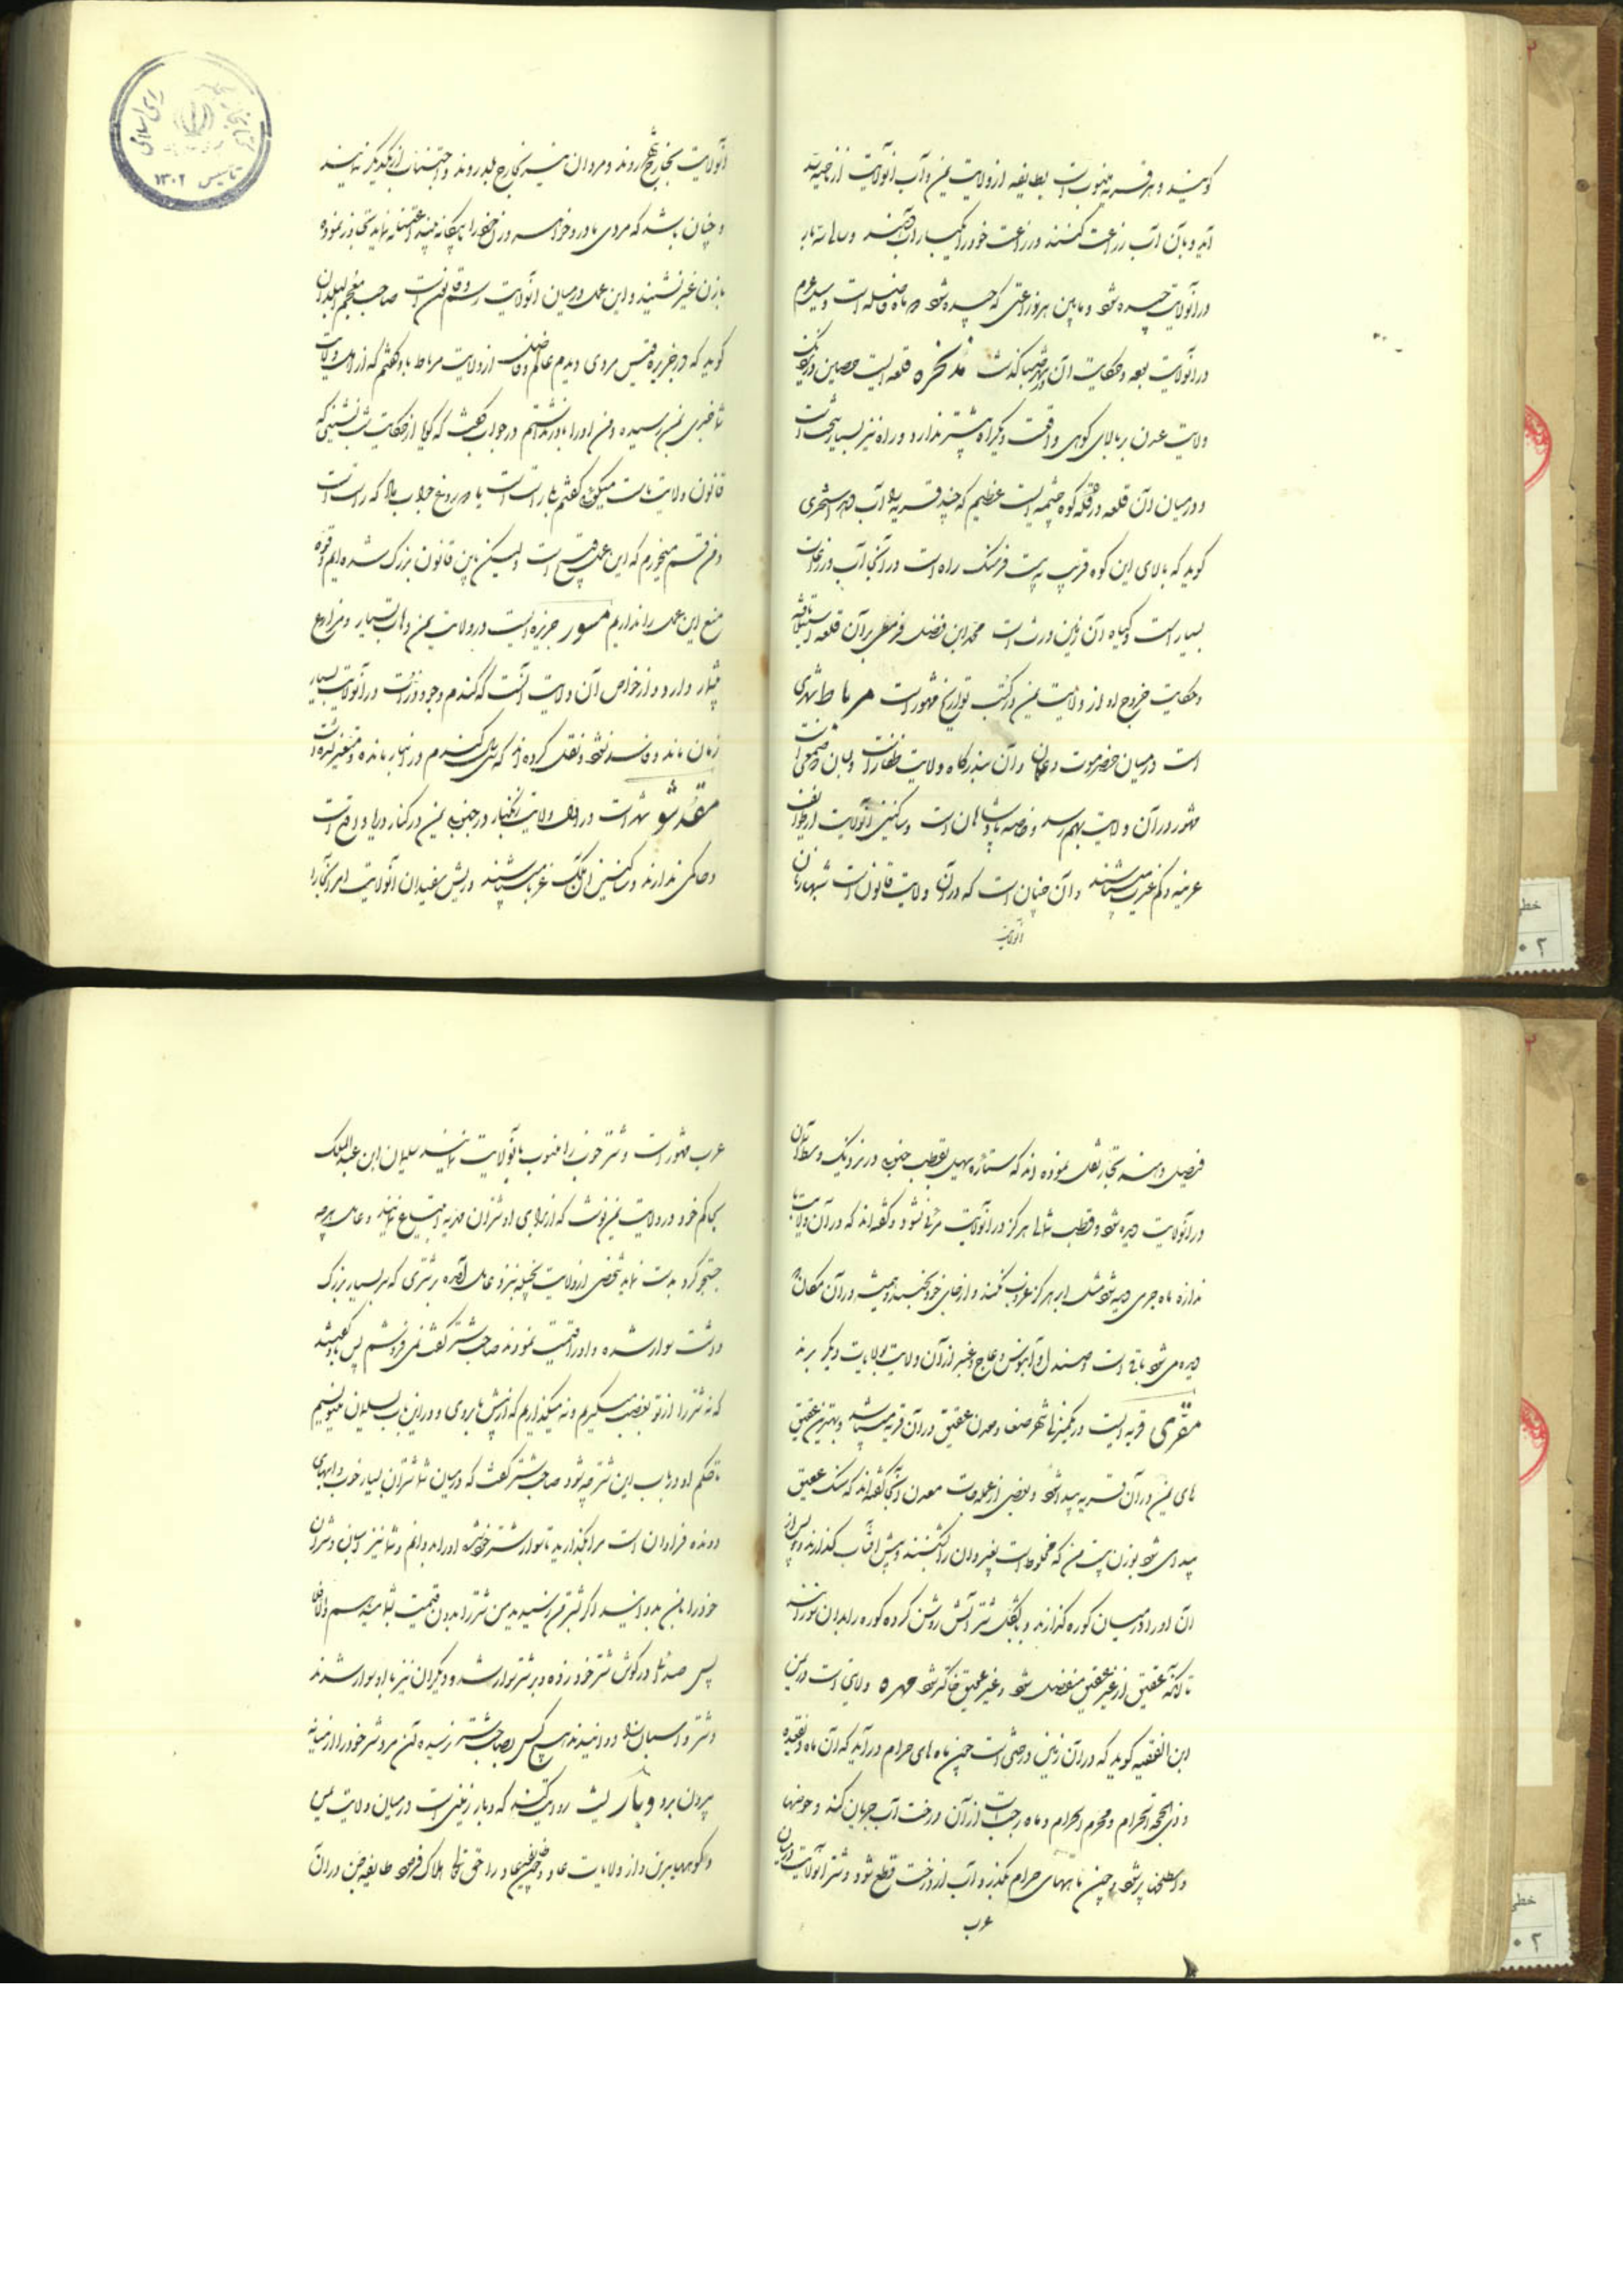 گویند و هر قریه منسوب است بطایفه از ولایت یمن و آب انولایت از ناحیه
آید و بآن آب زراعت کنند و زراعت خود را یکبار آب دهند و
در انولایت چیده شود و مابین هر زراعتی که چیده شود دو ماه فاصله است و
در انولایت بوده و حکایت آن در شهر سبا گذشت مذیخره قلعه ایست حصین در نزدیک
ولایت عدن بر بالای کوهی واقعست و یکراه بیشتر ندارد و راه نیز بسیار سخت است
و در میان آن قلعه در قله کوه چشمه ایست عظیم که چند قریه را آب دهد اصطخری
گوید که بالای این کوه قریب به بیست فرسنک راه است و در آنجا آب و زراعت
بسیار است و گیاه آن زمین ورس است محمد ابن فضل قرمطی بر آن قلعه استیلا یافته
و حکایت خروج او از ولایت یمن در کتب تواریخ مشهور است مرباط شهری
است در میان حضرموت و عمان و آن بندرگاه ولایت ظفار است و لبان و صمغی است
مشهور در آن ولایت بهم رسد و خاصه پادشاهان است و ساکنین انولایت از طوایف
عربند و آن چنان است که در آن ولایت قانون است شبها زنان
انولایت
انولایت بخارج شهر روند و مردان نیز بخارج بلد روند و اجتناب از یکدیگر ننمایند
و چنان باشد که مردی مادر و خواهر و زن خود را با بیگانه بیند و اعتنا ننماید و تجاوز نموده
با زن غیر نشیند و این عمل در میان انولایت رسم و قانون است صاحب معجم البلدان
گوید که در جزیره قیس مردی دیدم عالم و فاضل از ولایت مرباط باو گفتم که از اهل ولایت
شما خبری بمن رسیده و من او را باور نداشتم در جواب گفت که گویا از حکایت شب نشینی که
قانون ولایت ماست میگوئی گفتم بلی راست است یا دروغ جواب داد که راست است
و من قسم میخورم که این عمل قبیح است ولیکن باین قانون بزرک شده ایم و قوه
منع این عمل را نداریم مسور جزیره ایست در ولایت یمن و دهات بسیار و مزارع
بیشمار دارد و از خواص آن ولایت آنست که گندم و جو و ذرت در انولایت بسیار
زمان ماند و فاسد نشود و نقل کرده اند که گندم در انبار مانده و متغیر نشده است
مقدشو شهریست در اول ولایت زنگبار در جنوب یمن در کنار دریا واقع است
و حاکمی ندارند و ساکنین آنملک غربا میباشند و ریش سفیدان انولایت امر تجار را
فیصل دهند تجار نقل نموده اند که ستاره سهیل بقطب جنوب در نزدیک وسط آسمان
در انولایت دیده شود و قطب شمالی هرگز در انولایت مرئی نشود و گفته اند که در آن ولایت
اندازه ماه جرمی دیده شود مثل ابر هرگز غروب نکند و از جای خود نجنبد و همیشه در آن مکان
دیده می شود باقی است و صندل و آبنوس و عاج و عنبر از آن ولایت بولایات دیگر برند
مقری قریه ایست در یکمنزلی شهر صنعا و معدن عقیق در آن قریه میباشد و بهترین عقیق
های یمن در آن قریه پیدا شود و بعضی از عملجات معدن آنجا گفته اند که سنک عقیق
پیدا می شود بوزن بیست من که مخلوط است بغیر و آن را شکنند و پیش آفتاب گذارند و پس از
آن او را در میان کوره گذارند و با پشکل شتر آتش روشن کرده کوره را بدان سوزانند
تا آنکه عقیق از غیر عقیق منفصل شود و غیر عقیق خاکستر شود مهره ولایتی است در یمن
ابن الفقیه گوید که در آن زمین درختی است چون ماه های حرام درآید که آن ماه ذیقعده
و ذی الحجه الحرام و محرم الحرام و ماه رجب است از آن درخت آب جریان کند و حوضها
و پر شود و چون ماههای حرام بگذرد آب از درخت قطع شود و شتر انولایت در میان
عرب
عرب مشهور است و شتر خوب را منسوب بآنولایت نمایند سلیمان ابن عبدالملک
بحاکم خود در ولایت یمن نوشت که از برای او شتران مهریه ابتیاع نمایند و عامل هرچه
جستجو کرد بدست نیامد شخصی از ولایت بجیله نزد عامل آمده بر شتری که سر بسیار بزرک
داشت سوار شده و او را قیمت نمودند صاحب شتر گفت نمی فروشم پس باو گفتند
که نه شتر را از تو بغصب میگیریم و نه میگذاریم که از پیش ما بروی و در این باب بسلیمان مینویسیم
تا حکم او در باب این شتر چه شود صاحب شتر گفت که در میان شما شتران بسیار خوب و اسبهای
دونده فراوان است مرا بگذارید تا سوار شتر خود شده او را بدوانم و شما نیز اسبان و شتران
خود را با من بدوانید اگر بشتر من رسیدید من شتر را بدون قیمت بشما میدهم والا فلا
پس صدائی در گوش شتر خود زده و بر شتر سوار شد و دیگران نیز با او سوار شدند
و شتر و اسبان را دوانیدند هیچ کس بصاحب شتر نرسیده آن مرد شتر خود را از میانه
بیرون برد وبار لیث روایت کند که وبار زمینی است در میان ولایت یمن
و کوههای یبرین و از ولایات عاد و چون عاد را حق تعالی هلاک فرمود طایفه جن در آن